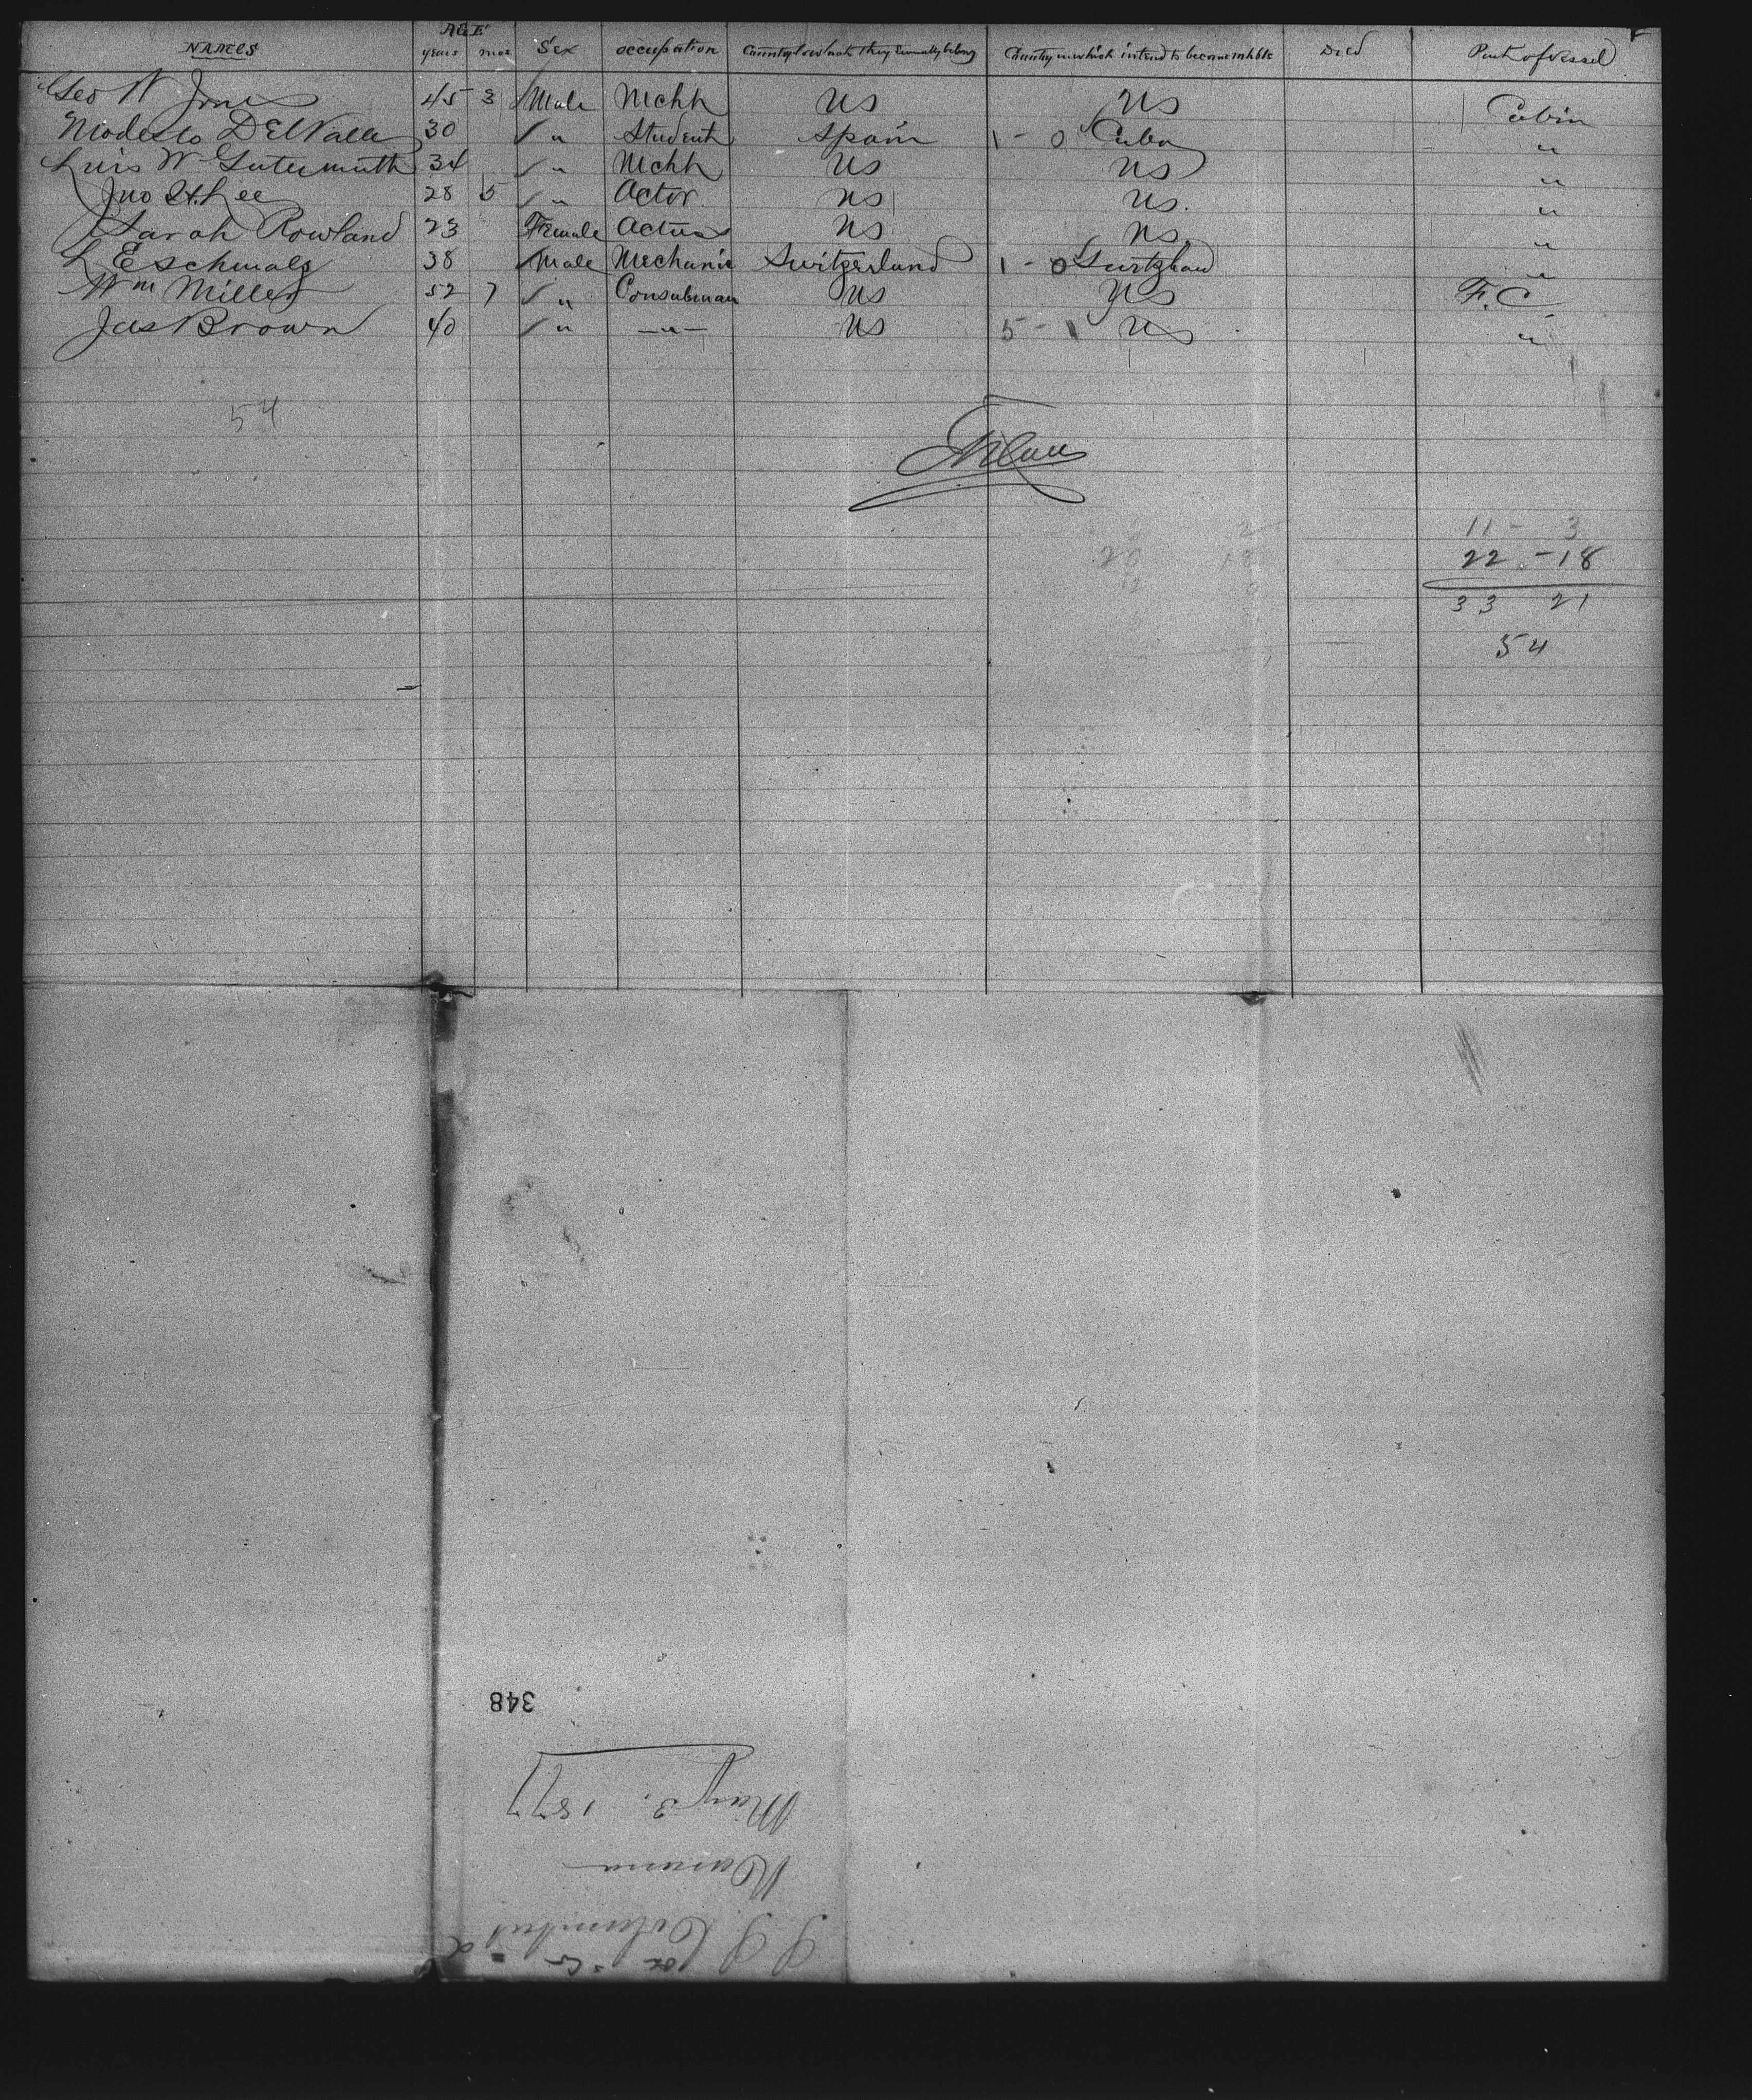 NAMES AGE years mos Sex occupation Country to which they severally belong Country in which intend to become inhbts Died Part of vessel
Geo W Jones 45 3 Male Mcht US US Cabin
Modesto DElValle 30 " Student Spain 1 - 0 Cuba "
Luis W Gutermuth 34 " Mcht US US "
Jno H. Lee 28 5 " Actor US US. "
Sarah Rowland 23 Female Actress US US "
L Eschmalz 38 Male Mechanic Switzerland 1 - 0 "
Wm Miller 52 7 " US US F.C
Jas Brown 40 " —"— US 5 - 1 US "
54
11 - 3
22 - 18
33 21
54
348
May 3. 1877
Havana
S S Columbus